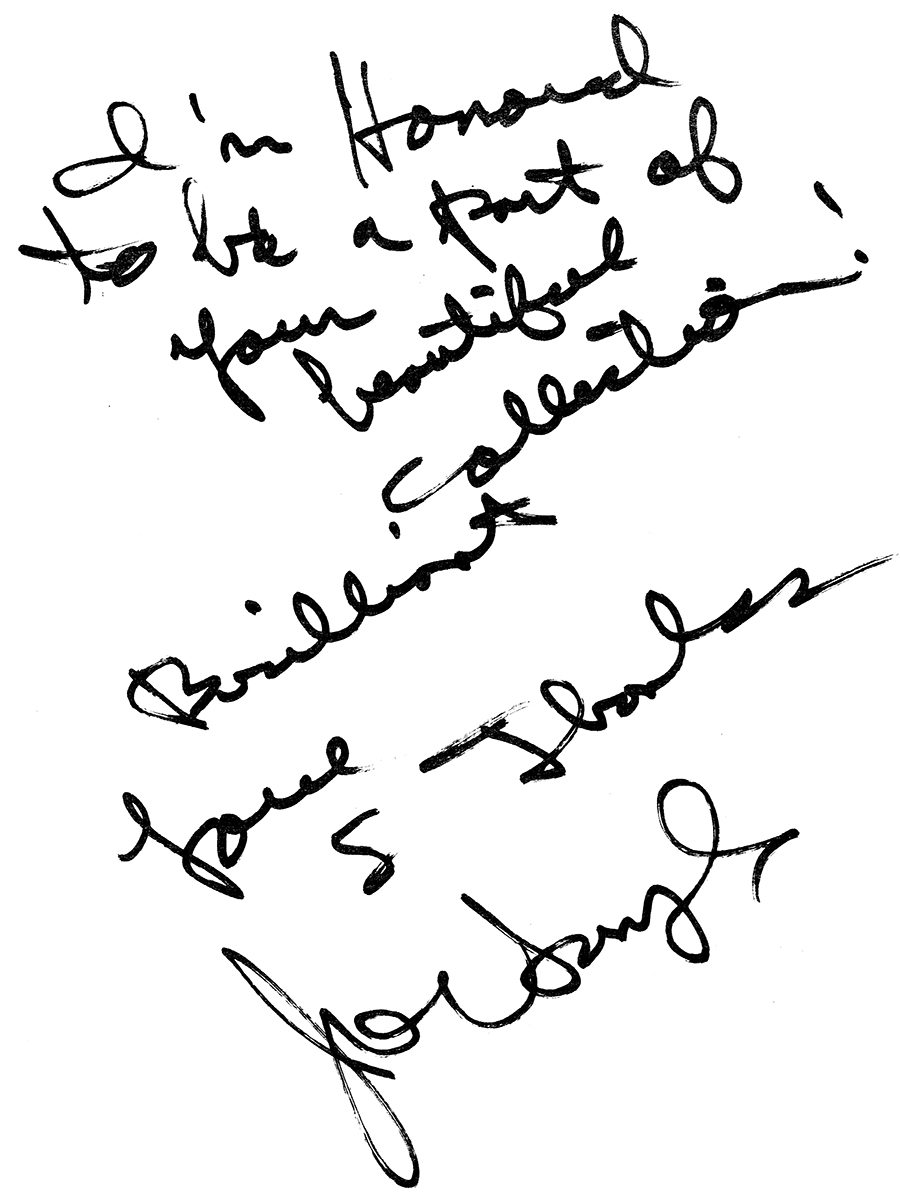 I'm Honored
to be a part of
your beautiful
collection!
Brilliant
Love & Thanks